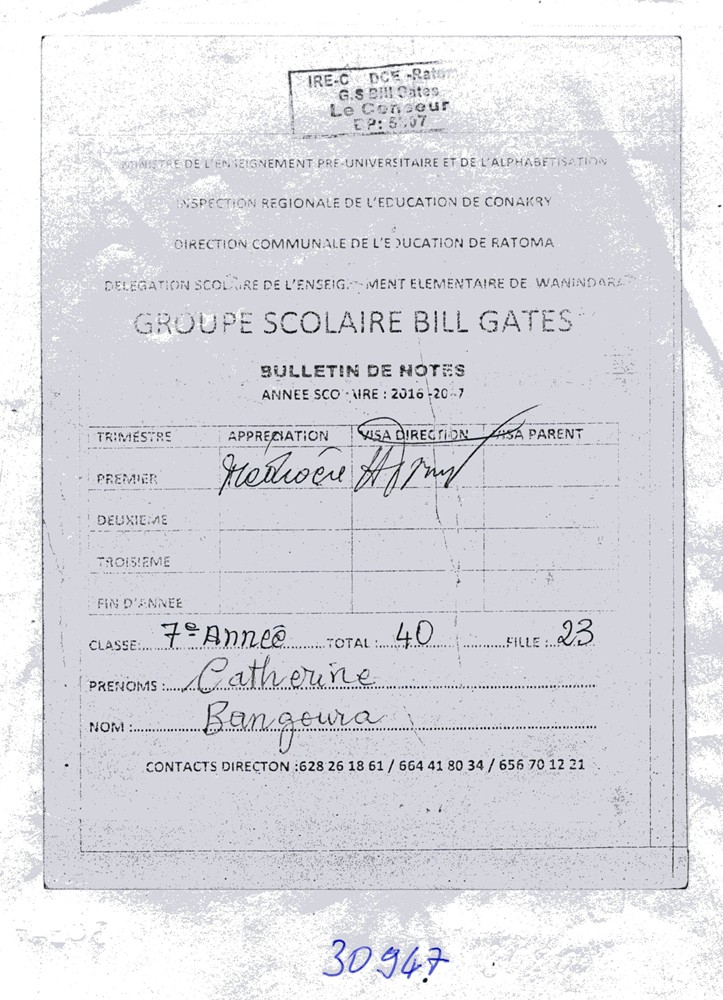 IRE-C DCE -Ratom
G.S Bill Gates
Le Censeur
MINISTRE DE L'ENSEIGNEMENT PRE-UNIVERSITAIRE ET DE L'ALPHABETISATION
INSPECTION REGIONALE DE L'EDUCATION DE CONAKRY
DIRECTION COMMUNALE DE L'EDUCATION DE RATOMA
DELEGATION SCOLAIRE DE L'ENSEIGNEMENT ELEMENTAIRE DE WANINDARA
GROUPE SCOLAIRE BILL GATES
BULLETIN DE NOTES
ANNEE SCOLAIRE : 2016-2017
TRIMESTRE APPRECIATION VISA DIRECTION VISA PARENT
PREMIER Médiocre
DEUXIEME
TROISIEME
FIN D'ANNEE
CLASSE:...7e Année...TOTAL :...40...FILLE :...23
PRENOMS :...Catherine
NOM :...Bangoura
CONTACTS DIRECTON :628 26 18 61 / 664 41 80 34 / 656 70 12 21
30947